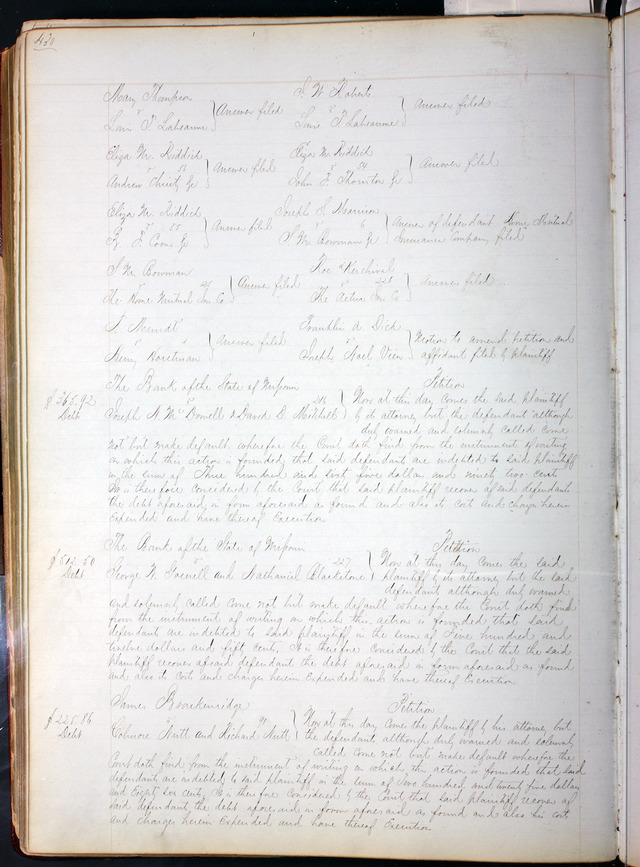 430
Mary Thompson
vs
Louis T Labeaume } Answer filed
S. W. Roberts
vs
Louis T Labeaume } Answer filed
Eliza M. Riddick
vs 53
Andrew Christy Jr } Answer filed
Eliza M. Riddick
vs 54
John F. Thornton Jr } Answer filed
Eliza M. Riddick
vs 55
Answer filed
Joseph S Morrison
vs 6
S M Bowman Jr } Answer of defendant Home Mutual
Insurance Company filed
S M Bowman
vs
The Home Mutual Ins Co } Answer filed
vs
The Aetna Ins Co } Answer filed
vs
Answer filed
Franklin A Dick
vs
Joseph } Motion to amend petition and
affidavit filed by plaintiff
The Bank of the State of Missouri
Petition
$365.92
Debt
vs
Joseph N McDowell & David D Mitchell } Now at this day comes the said plaintiff
by its attorney but the defendant although
duly warned and solemnly called come
not but make default wherefore the Court doth find from the instrument of writing
on which this action is founded, that said defendant are indebted to said plaintiff
in the sum of Three hundred and sixty five dollars and ninety two cents
It is therefore considered by the Court that said plaintiff recover of said defendants
the debt aforesaid in form aforesaid as found and also its costs and charges herein
expended and have thereof Execution
The Bank of the State of Missouri
Petition
$512.50
Debt
vs 227
George W and Nathaniel Blackstone } Now at this day comes the said
plaintiff by its attorney but the said
defendants although duly warned
and solemnly called come not but make default wherefore the Court doth find
from the instrument of writing on which this action is founded that said
defendants are indebted to said plaintiff in the sum of Five hundred and
twelve dollars and fifty cents, It is therefore considered by the Court that the said
plaintiff recover of said defendant the debt aforesaid in form aforesaid as found
and also its costs and charges herein expended and have thereof Execution
James Brackenridge
Petition
$225.86
Debt
vs
and Richard } Now at this day comes the plaintiff by his attorney but
the defendant although duly warned and solemnly
called come not but make default wherefore the
Court doth find from the instrument of writing on which this action is founded that said
defendants are indebted to said plaintiff in the sum of Two hundred and twenty five dollars
and Eighty six cents, It is therefore considered by the Court that said plaintiff recover of
said defendant the debt aforesaid in form aforesaid as found and also his costs
and charges herein expended and have thereof Execution